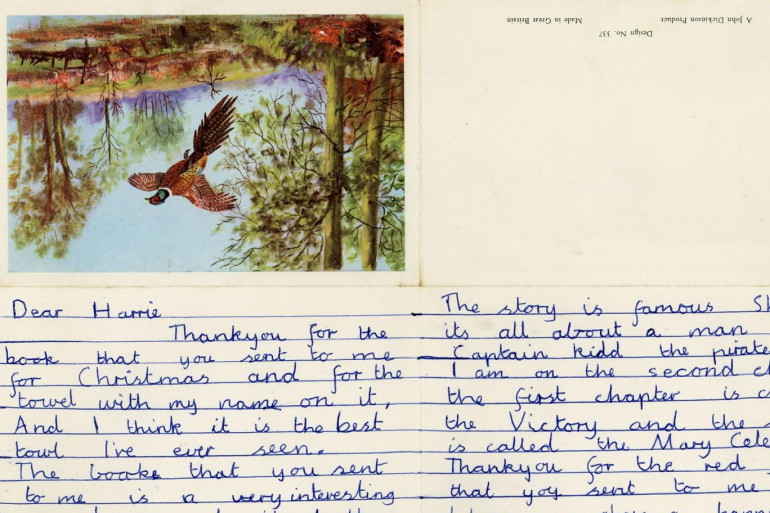 A John Dickinson Product
Made in Great Britain
Design No. 337
Dear Harrie
Thankyou for the
book that you sent to me
for Christmas and for the
towel with my name on it,
And I think it is the best
towl I've ever seen.
The book that you sent
to me is a very interesting
The story is famous
its all about a man
Captain kidd the pirate
I am on the second
the first chapter is
the Victory and the
is called the Mary Cele
Thankyou for the red
that yoy sent to me